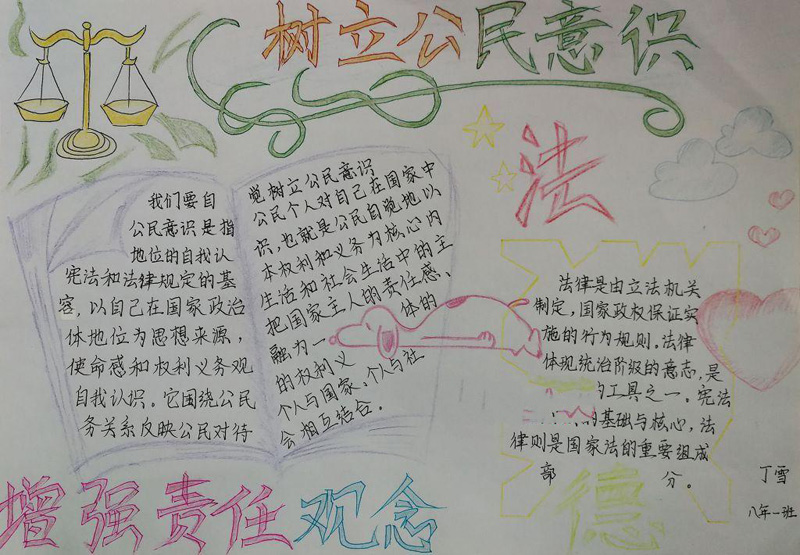 树立公民意识
我们要自
公民意识是指
地位的自我认
宪法和法律规定的基
容，以自己在国家政治
体地位为思想来源，
使命感和权利义务观
自我认识。它围绕公民
务关系反映公民对待
觉树立公民意识
公民个人对自己在国家中
识，也就是公民自觉地以
本权利和义务为核心内
生活和社会生活中的主
把国家主人的责任感、
融为一 体的
的权利义
个人与国家、个人与社
会相互结合。
法
法律是由立法机关
制定，国家政权保证实
施的行为规则。法律
体现统治阶级的意志，是
的工具之一。宪法
的基础与核心，法
律则是国家法的重要组成
部 分。
德
增强责任观念
丁雪
八年一班